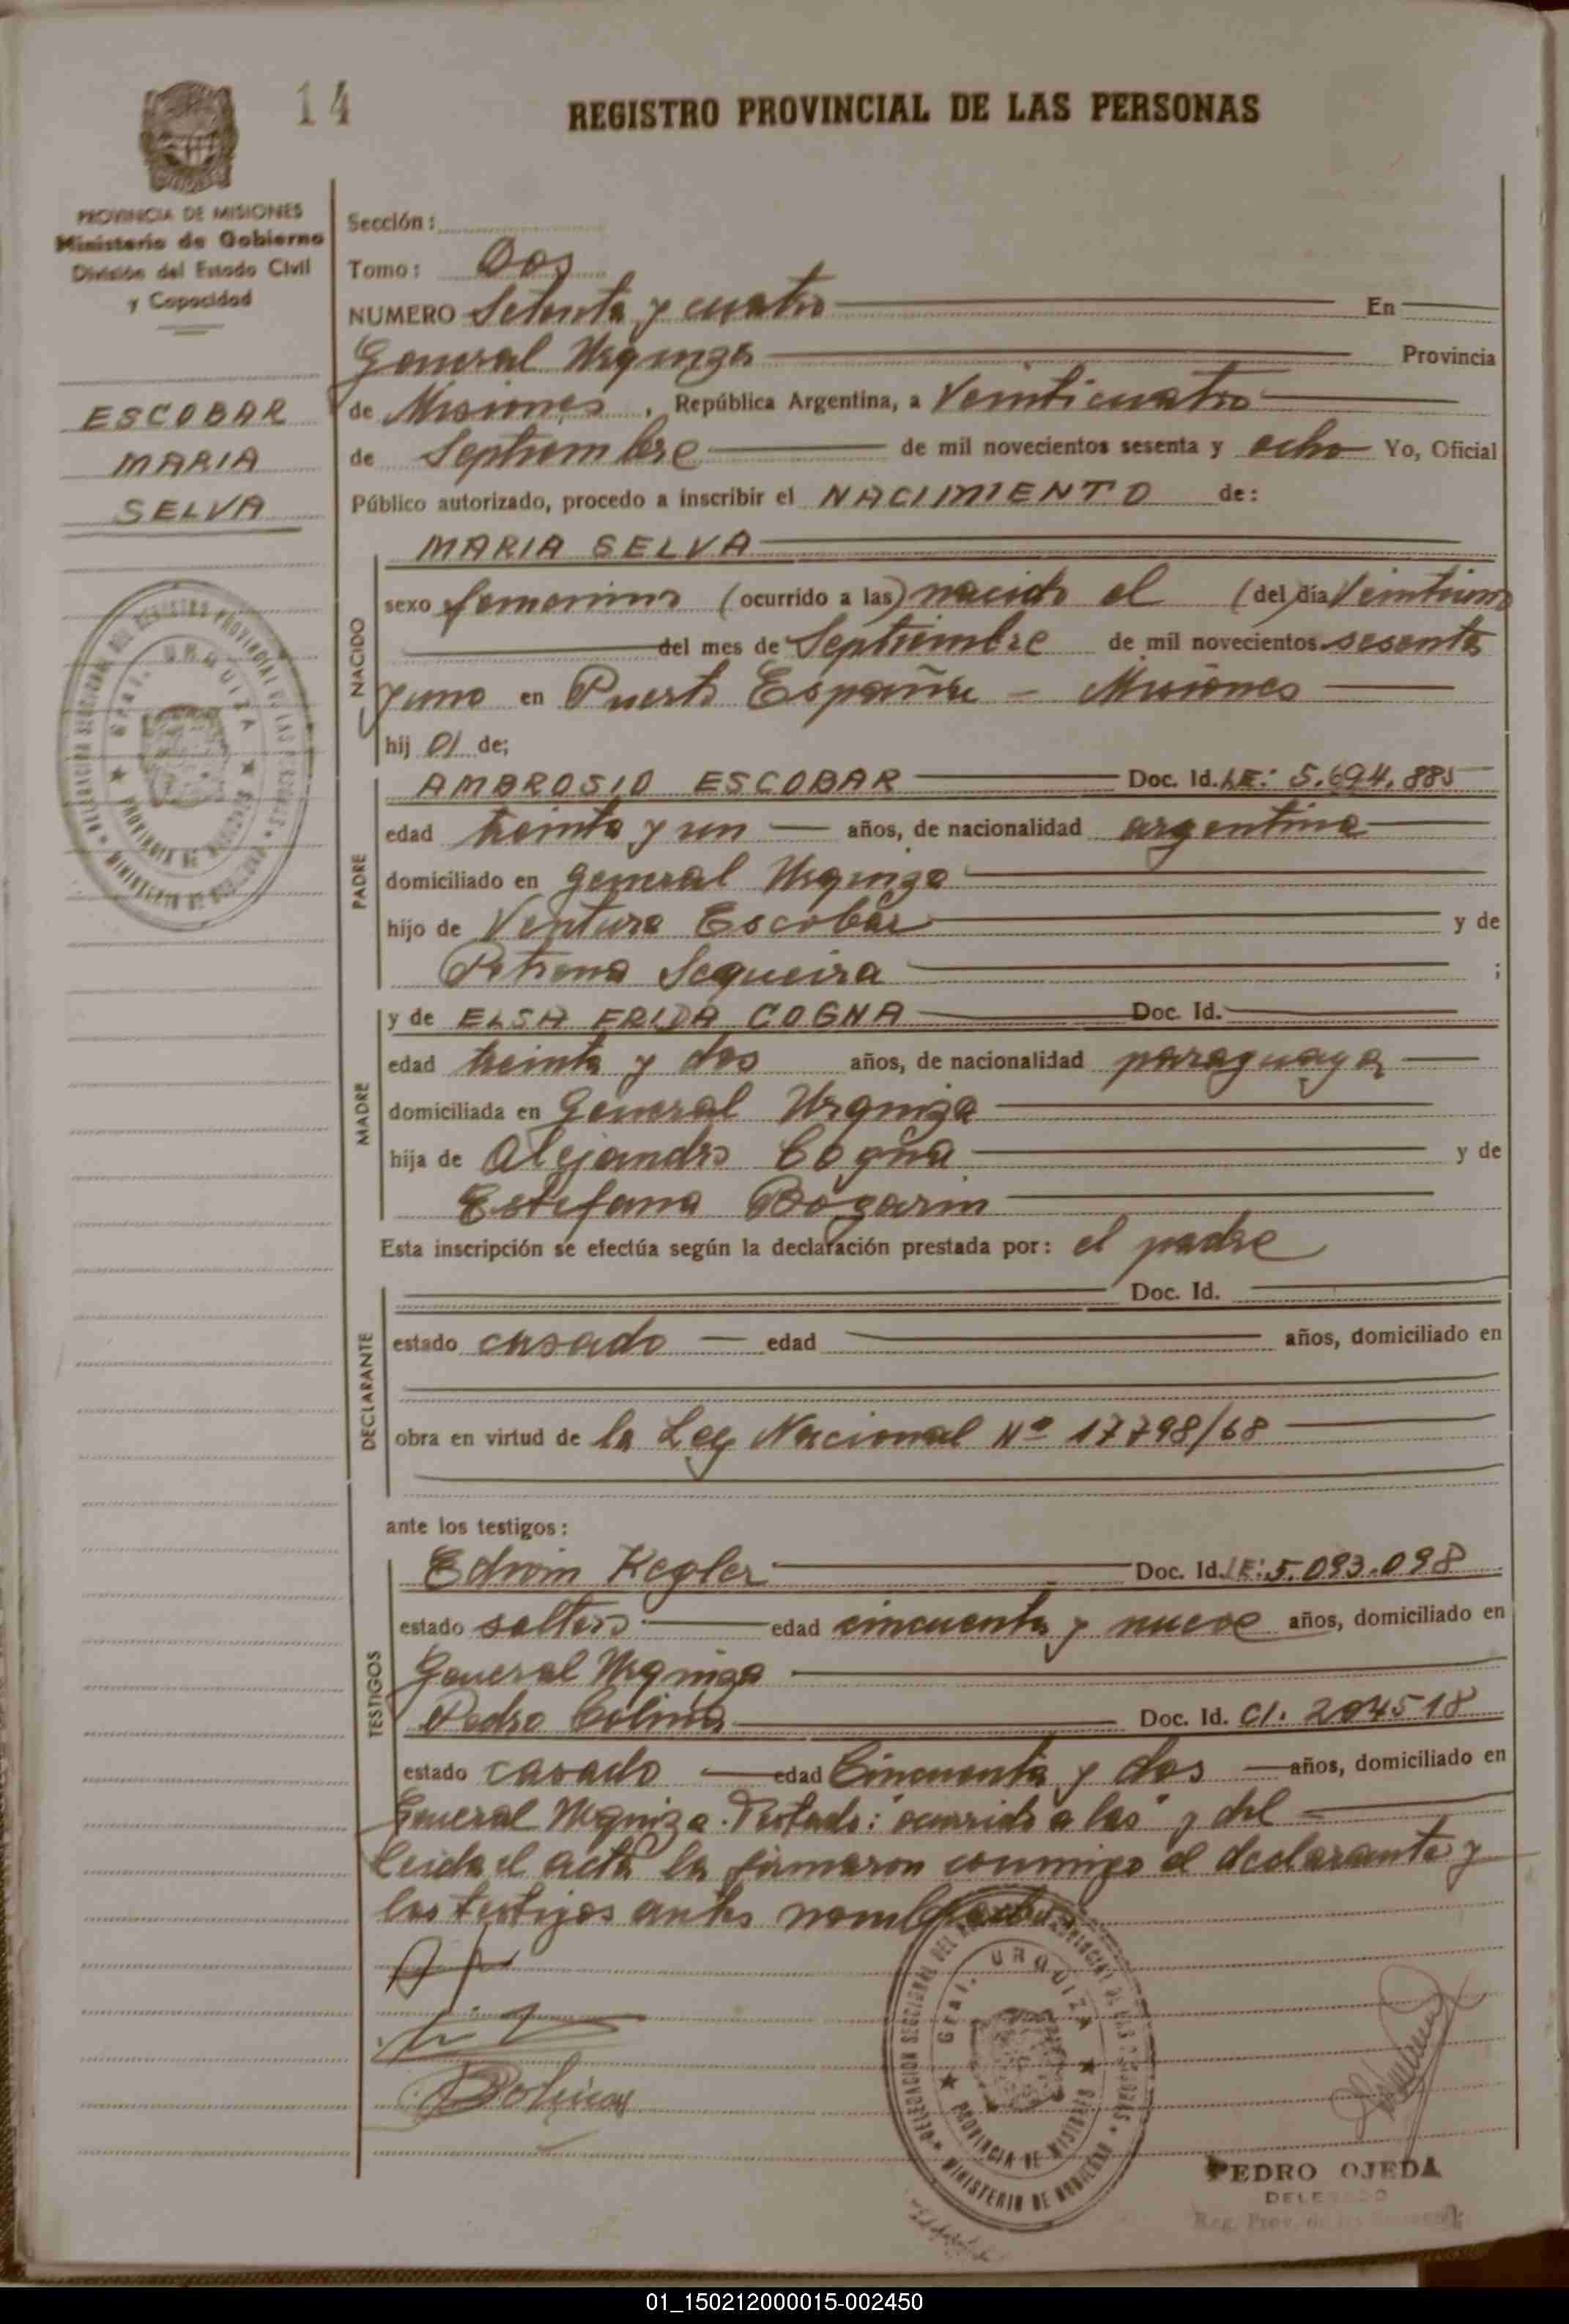 14
REGISTRO PROVINCIAL DE LAS PERSONAS
PROVINCIA DE MISIONES
Ministerio de Gobierno
División del Estado Civil
y Capacidad
ESCOBAR
MARIA
SELVA
Sección:
Tomo: Dos
NUMERO Setenta y cuatro En
General Urquiza Provincia
de Misiones, República Argentina, a Veinticuatro
de Septiembre de mil novecientos sesenta y ocho Yo, Oficial
Público autorizado, procedo a inscribir el NACIMIENTO de:
MARIA SELVA
NACIDO
sexo femenino (ocurrido a las) nacido el (del día Veintiuno
del mes de Septiembre de mil novecientos sesenta
y uno en Puerto España - Misiones
hij a de;
PADRE
AMBROSIO ESCOBAR Doc. Id. LE: 5.694.885
edad treinta y un años, de nacionalidad argentina
domiciliado en General Urquiza
hijo de Ventura Escobar y de
Petrona Sequeira ;
MADRE
y de ELSA FRIDA COGNA Doc. Id.
edad treinta y dos años, de nacionalidad paraguaya
domiciliada en General Urquiza
hija de Alejandro Cogña y de
Estefana Bogarin
Esta inscripción se efectúa según la declaración prestada por: el padre
DECLARANTE
Doc. Id.
estado casado edad años, domiciliado en
obra en virtud de la Ley Nacional Nº 17798/68
ante los testigos:
TESTIGOS
Edwin Kegler Doc. Id. LE: 5.093.098
estado soltero edad cincuenta y nueve años, domiciliado en
General Urquiza
Pedro Colina Doc. Id. CI. 204518
estado casado edad Cincuenta y dos años, domiciliado en
General Urquiza. Testado: "ocurrido a las" y del
Leida el acta la firmaron conmigo el declarante y
los testigos antes nombrados
DELEGACION SECCIONAL DEL REGISTRO PROVINCIAL DE LAS PERSONAS
Gral. URQUIZA
PROVINCIA DE MISIONES
MINISTERIO DE GOBIERNO
PEDRO OJEDA
DELEGADO
Reg. Prov. de las Personas
01_150212000015-002450